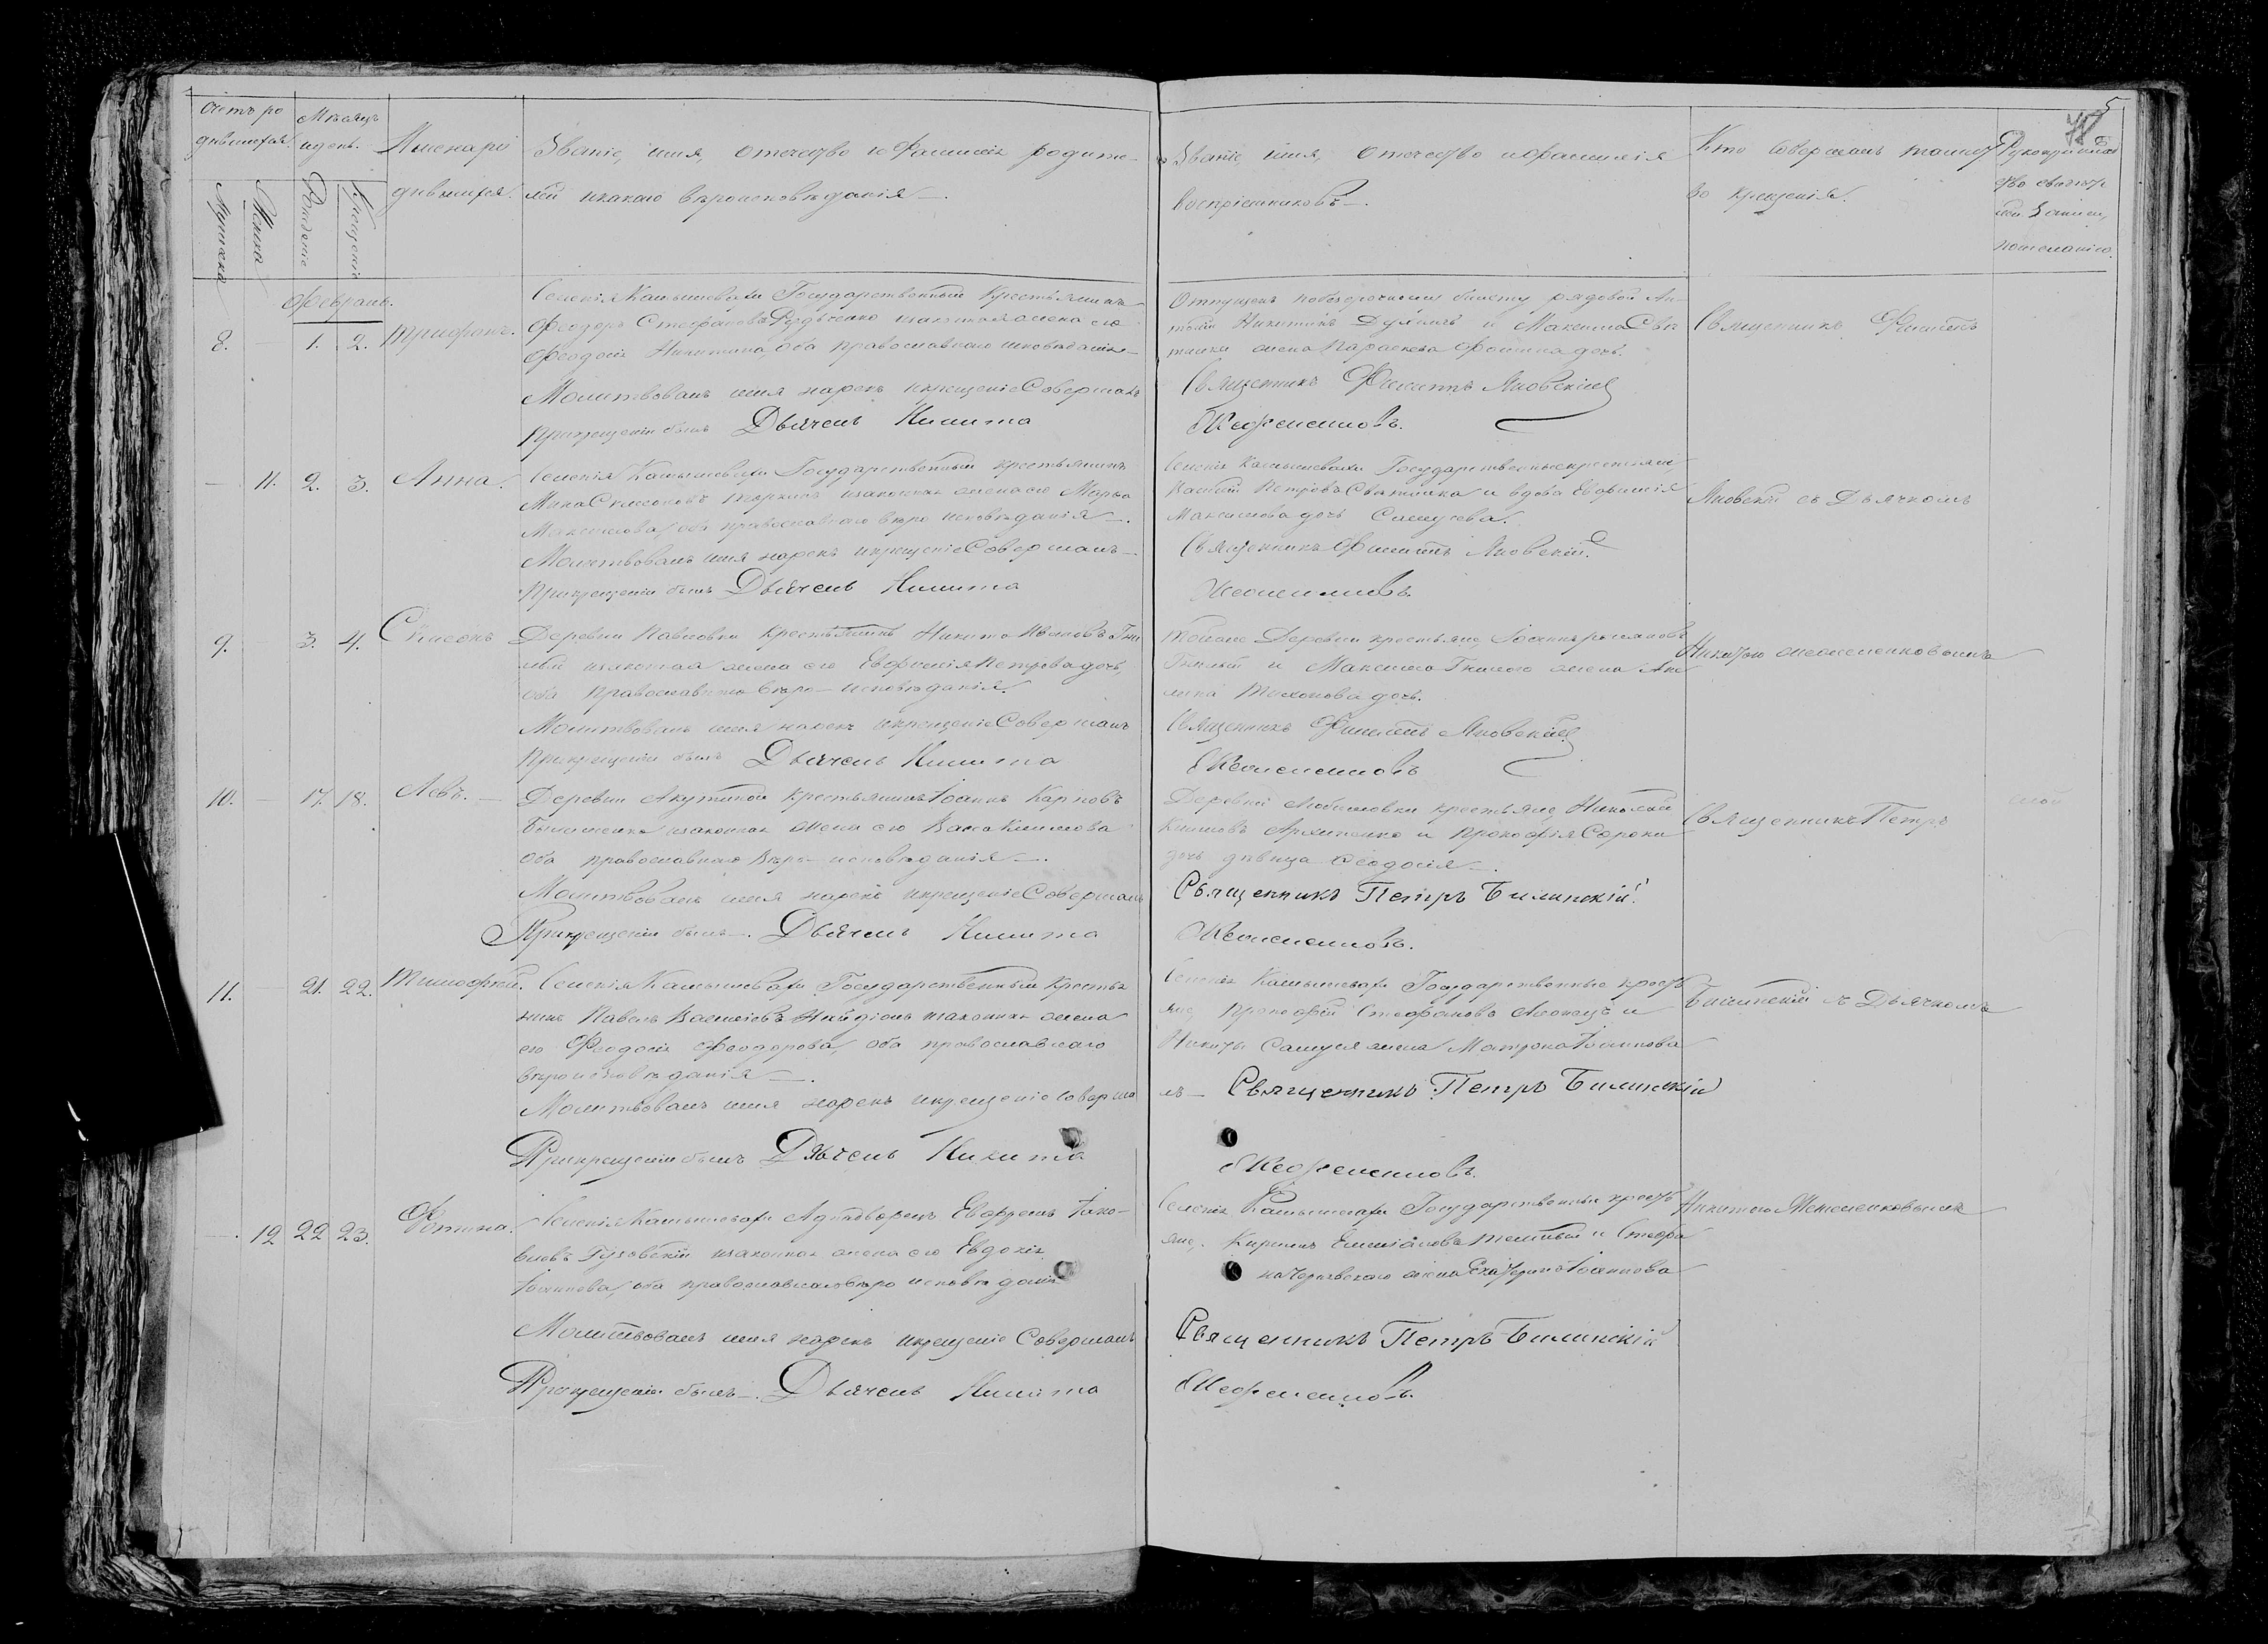 5
Счетъ ро
дившихся.
Мѣсяцъ
и день.
Имена ро
дившихся.
Званіе, имя, отечество и фамилія родите-
лей и какаго вѣроисповѣданія.
Званіе, имя, отечество и фамилія
воспріемниковъ.
Кто совершалъ таинст
во крещенія.
Рукоприклад
ство свидѣте
лей записи,
по желанію.
Мужеска
Женска
Рожденіе
Крещеніе
Февраль.
8. 1. 2. Трифонъ.
Селенія Камышевахи Государственный Крестьянинъ
Феодоръ Стефановъ Рудченко и законная жена его
Феодосія Никитина, оба православнаго исповѣданія
Молитвовалъ имя нарекъ и крещеніе совершалъ
При крещеніи былъ Дьячекъ Никита
Отпущенъ по безсрочному билету рядовой Ан-
тоній Никитинъ и Максима
жена Параскева Фомина дочь.
Священникъ Филиппъ Яновскій
Жежеленковъ.
Священникъ Филиппъ
11. 2. 3. Анна.
Селенія Камышевахи Государственный крестьянинъ
Мина Симеоновъ и законная жена его Марѳа
Максимова, оба православнаго вѣроисповѣданія.
Молитвовалъ имя нарекъ и крещеніе совершалъ
При крещеніи былъ Дьячекъ Никита
Селенія Камышевахи Государственные крестьяне,
Василій Петровъ и вдова Евфимія
Максимова дочь Самусева.
Священникъ Филиппъ Яновскій.
Жежеленковъ.
Яновскій съ Дьячкомъ
9. 3. 4. Симеонъ
Деревни Павловки крестьянинъ Никита Ивановъ Гни
лый и законная жена его Евфимія Петрова дочь,
оба православнаго вѣро-исповѣданія.
Молитвовалъ имя нарекъ и крещеніе совершалъ
При крещеніи былъ Дьячекъ Никита
Той же Деревни крестьяне, Іоаннъ
и Максима Гнилого жена Аку
лина Тихонова дочь.
Священникъ Филиппъ Яновскій
Жежеленковъ
Никитою Жежеленковымъ
10. 17. 18. Левъ.
Деревни крестьянинъ Іоаннъ Карповъ
и законная жена его Васса Климова
оба православнаго вѣро-исповѣданія.
Молитвовалъ имя нарекъ и крещеніе совершалъ
При крещеніи былъ. Дьячекъ Никита
Деревни Любимовки крестьяне, Николай
Климовъ Архипенко и Прокофія Сороки
дочь дѣвица Феодосія.
Священникъ Петръ Билинскій
Жежеленковъ.
Священникъ Петръ
11. 21. 22. Тимофей.
Селенія Камышевахи Государственный Крестья
нинъ Павелъ Васильевъ и законная жена
его Феодосія Феодорова, оба православнаго
вѣроисповѣданія.
Молитвовалъ имя нарекъ и крещеніе соверша
При крещеніи былъ Дьячекъ Никита
Селенія Камышевахи Государственные кресть
яне, Прокофій Стефановъ и
Никиты Самуся жена Матрона Іоаннова
лъ Священникъ Петръ Билинскій
Жежеленковъ.
Билинскій съ Дьячкомъ
12 22 23. Фотина.
Селенія Камышевахи Однодворецъ Ефремъ Іако-
влевъ и законная жена его Евдокія
Іоаннова, оба православнаго вѣро исповѣданія
Молитвовалъ имя нарекъ и крещеніе Совершалъ
При крещеніи былъ. Дьячекъ Никита
Селенія Камышевахи Государственные кресть
яне, Кириллъ Емиліановъ и Стефа
на жена Екатерина Іоаннова
Священникъ Петръ Билинскій
Жежеленковъ.
Никитою Жежеленковымъ